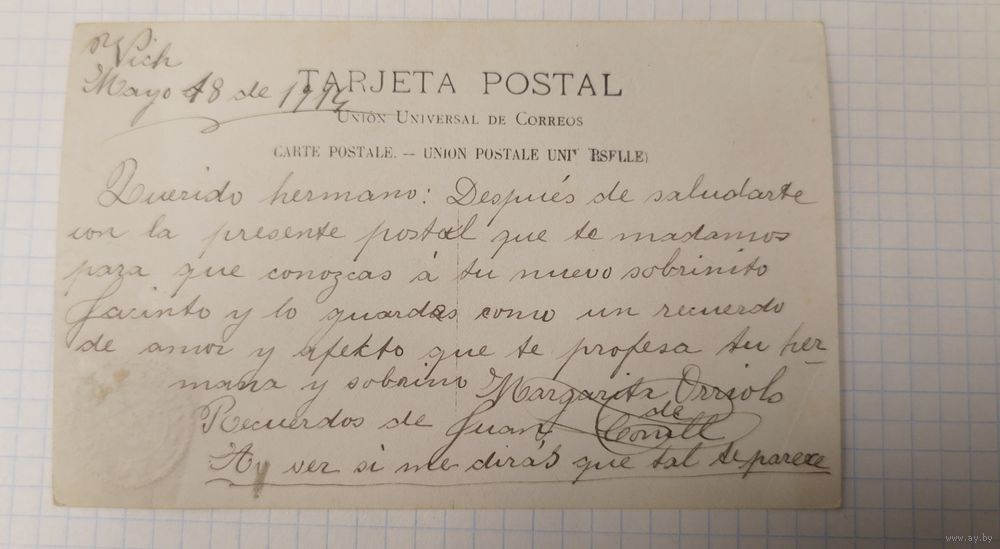 Vich
Mayo 18 de 1914
TARJETA POSTAL
UNIÓN UNIVERSAL DE CORREOS
CARTE POSTALE. — UNION POSTALE UNIVERSELLE)
Querido hermano: Después de saludarte
con la presente postal que te madamos
para que conozcas á tu nuevo sobrinito
Jacinto y lo guardes como un recuerdo
de amor y afekto que te profesa tu her-
mana y sobrino Margarita Orriols
de
Recuerdos de Juan
Ay ver si me dirás que tal te parexe
www.ay.by